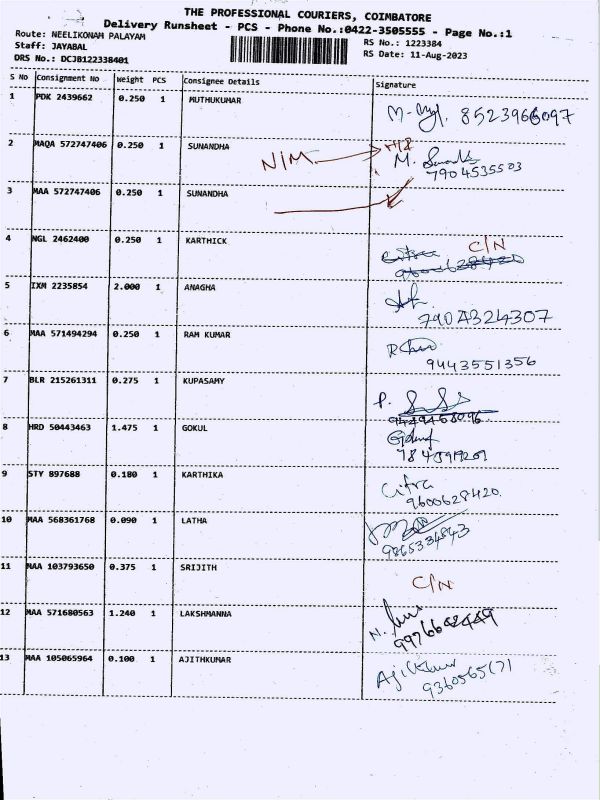 THE PROFESSIONAL COURIERS, COIMBATORE
Delivery Runsheet - PCS - Phone No.:0422-3505555 - Page No.:1
Route: NEELIKONAM PALAYAM
Staff: JAYABAL
DRS No.: DCJB122338401
RS No.: 1223384
RS Date: 11-Aug-2023
S No Consignment No Weight PCS Consignee Details Signature
1 PDK 2439662 0.250 1 MUTHUKUMAR
8523966097
2 MAQA 572747406 0.250 1 SUNANDHA
N/M
M.
7904535503
3 MAA 572747406 0.250 1 SUNANDHA
4 NGL 2462400 0.250 1 KARTHICK
C/N
5 IXM 2235854 2.000 1 ANAGHA
6 MAA 571494294 0.250 1 RAM KUMAR
9443551356
7 BLR 215261311 0.275 1 KUPASAMY
P.
8 HRD 50443463 1.475 1 GOKUL
9 STY 897688 0.180 1 KARTHIKA
Citra
9600628420
10 MAA 568361768 0.090 1 LATHA
9865334843
11 NAA 103793650 0.375 1 SRIJITH
C/N
12 MAA 571680563 1.240 1 LAKSHMANNA
N.
13 MAA 105065964 0.100 1 AJITHKUMAR
Ajitkumar